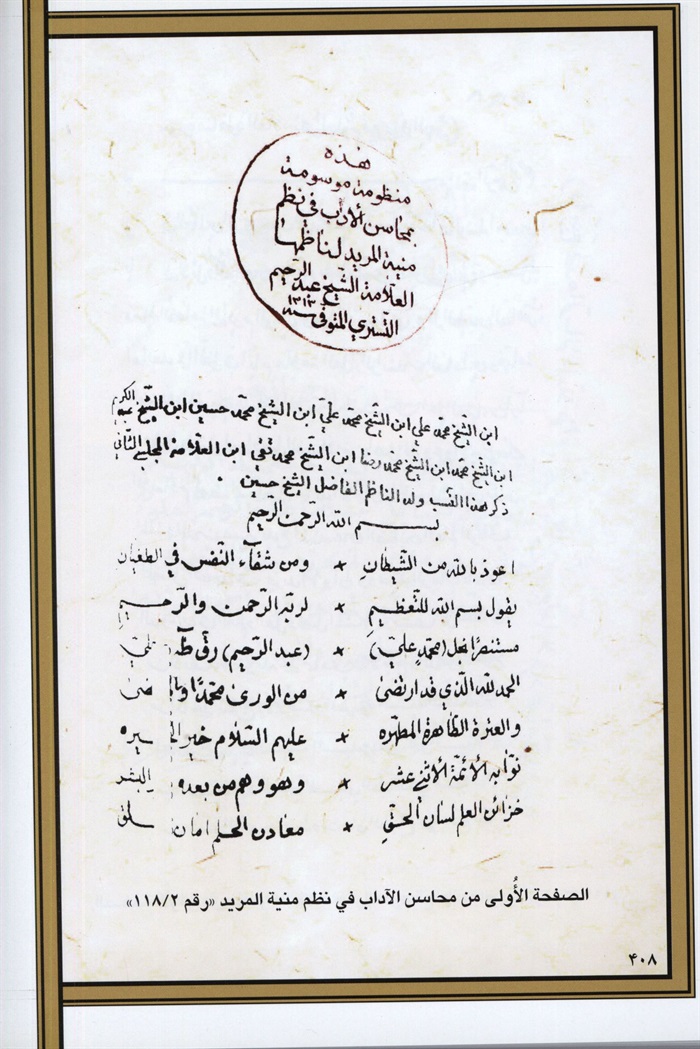 هذه
منظومة موسومة
بمحاسن الأداب في نظم
منية المريد لناظمها
العلامة الشيخ عبد الرحيم
التستري المتوفى سنه ١٣١٣
ابن الشيخ محمد علي ابن الشيخ محمد علي ابن الشيخ محمد حسين ابن الشيخ عبد الكريم
ابن الشيخ محمد ابن الشيخ محمد رضا ابن الشيخ محمد تقي ابن العلامة المجلسي الثاني
ذكر هذا النسب ولد الناظم الفاضل الشيخ حسين .
بسم الله الرحمن الرحيم
اعوذ بالله من الشيطان × ومن شقآء النفس في الطغيان
يقول بسم الله للتعظيم × لربه الرحمن والرحيم
مستنصرًا نجل (محمد علي) × (عبد الرحيم) رق طه
الحمد لله الذي قد ارتضى × من الورى محمدًا
والعترة الطاهرة المطهره × عليهم السلام خير
نوابه الأئمة الأثني عشر × وهو وهم من بعده البشر
خزائن العلم لسان الحق × معادن الحلم امان
الصفحة الأُولى من محاسن الآداب في نظم منية المريد «رقم ١١٨/٢»
٤٠٨